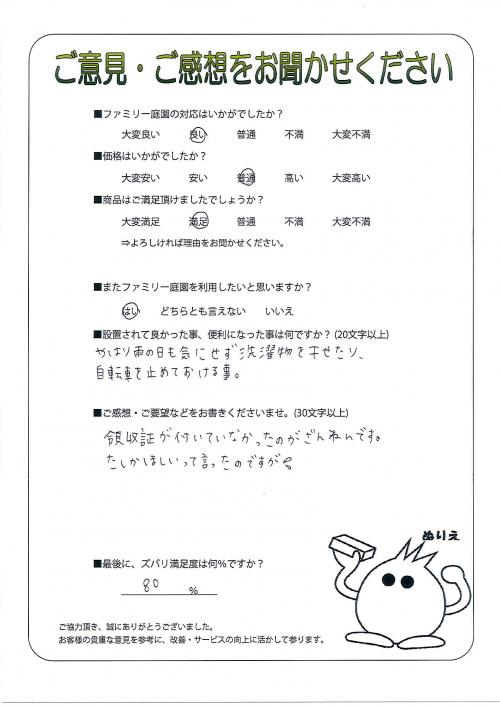 ご意見・ご感想をお聞かせください
■ファミリー庭園の対応はいかがでしたか？
大変良い 良い 普通 不満 大変不満
■価格はいかがでしたか？
大変安い 安い 普通 高い 大変高い
■商品はご満足頂けましたでしょうか？
大変満足 満足 普通 不満 大変不満
⇒よろしければ理由をお聞かせください。
■またファミリー庭園を利用したいと思いますか？
はい どちらとも言えない いいえ
■設置されて良かった事、便利になった事は何ですか？(20文字以上)
やはり雨の日も気にせず洗濯物を干せたり、
自転車を止めておける事。
■ご感想・ご要望などをお書きくださいませ。(30文字以上)
領収証が付いていなかったのがざんねんです。
たしかほしいって言ったのですが。
ぬりえ
■最後に、ズバリ満足度は何％ですか？
80 %
ご協力頂き、誠にありがとうございました。
お客様の貴重な意見を参考に、改善・サービスの向上に活かして参ります。